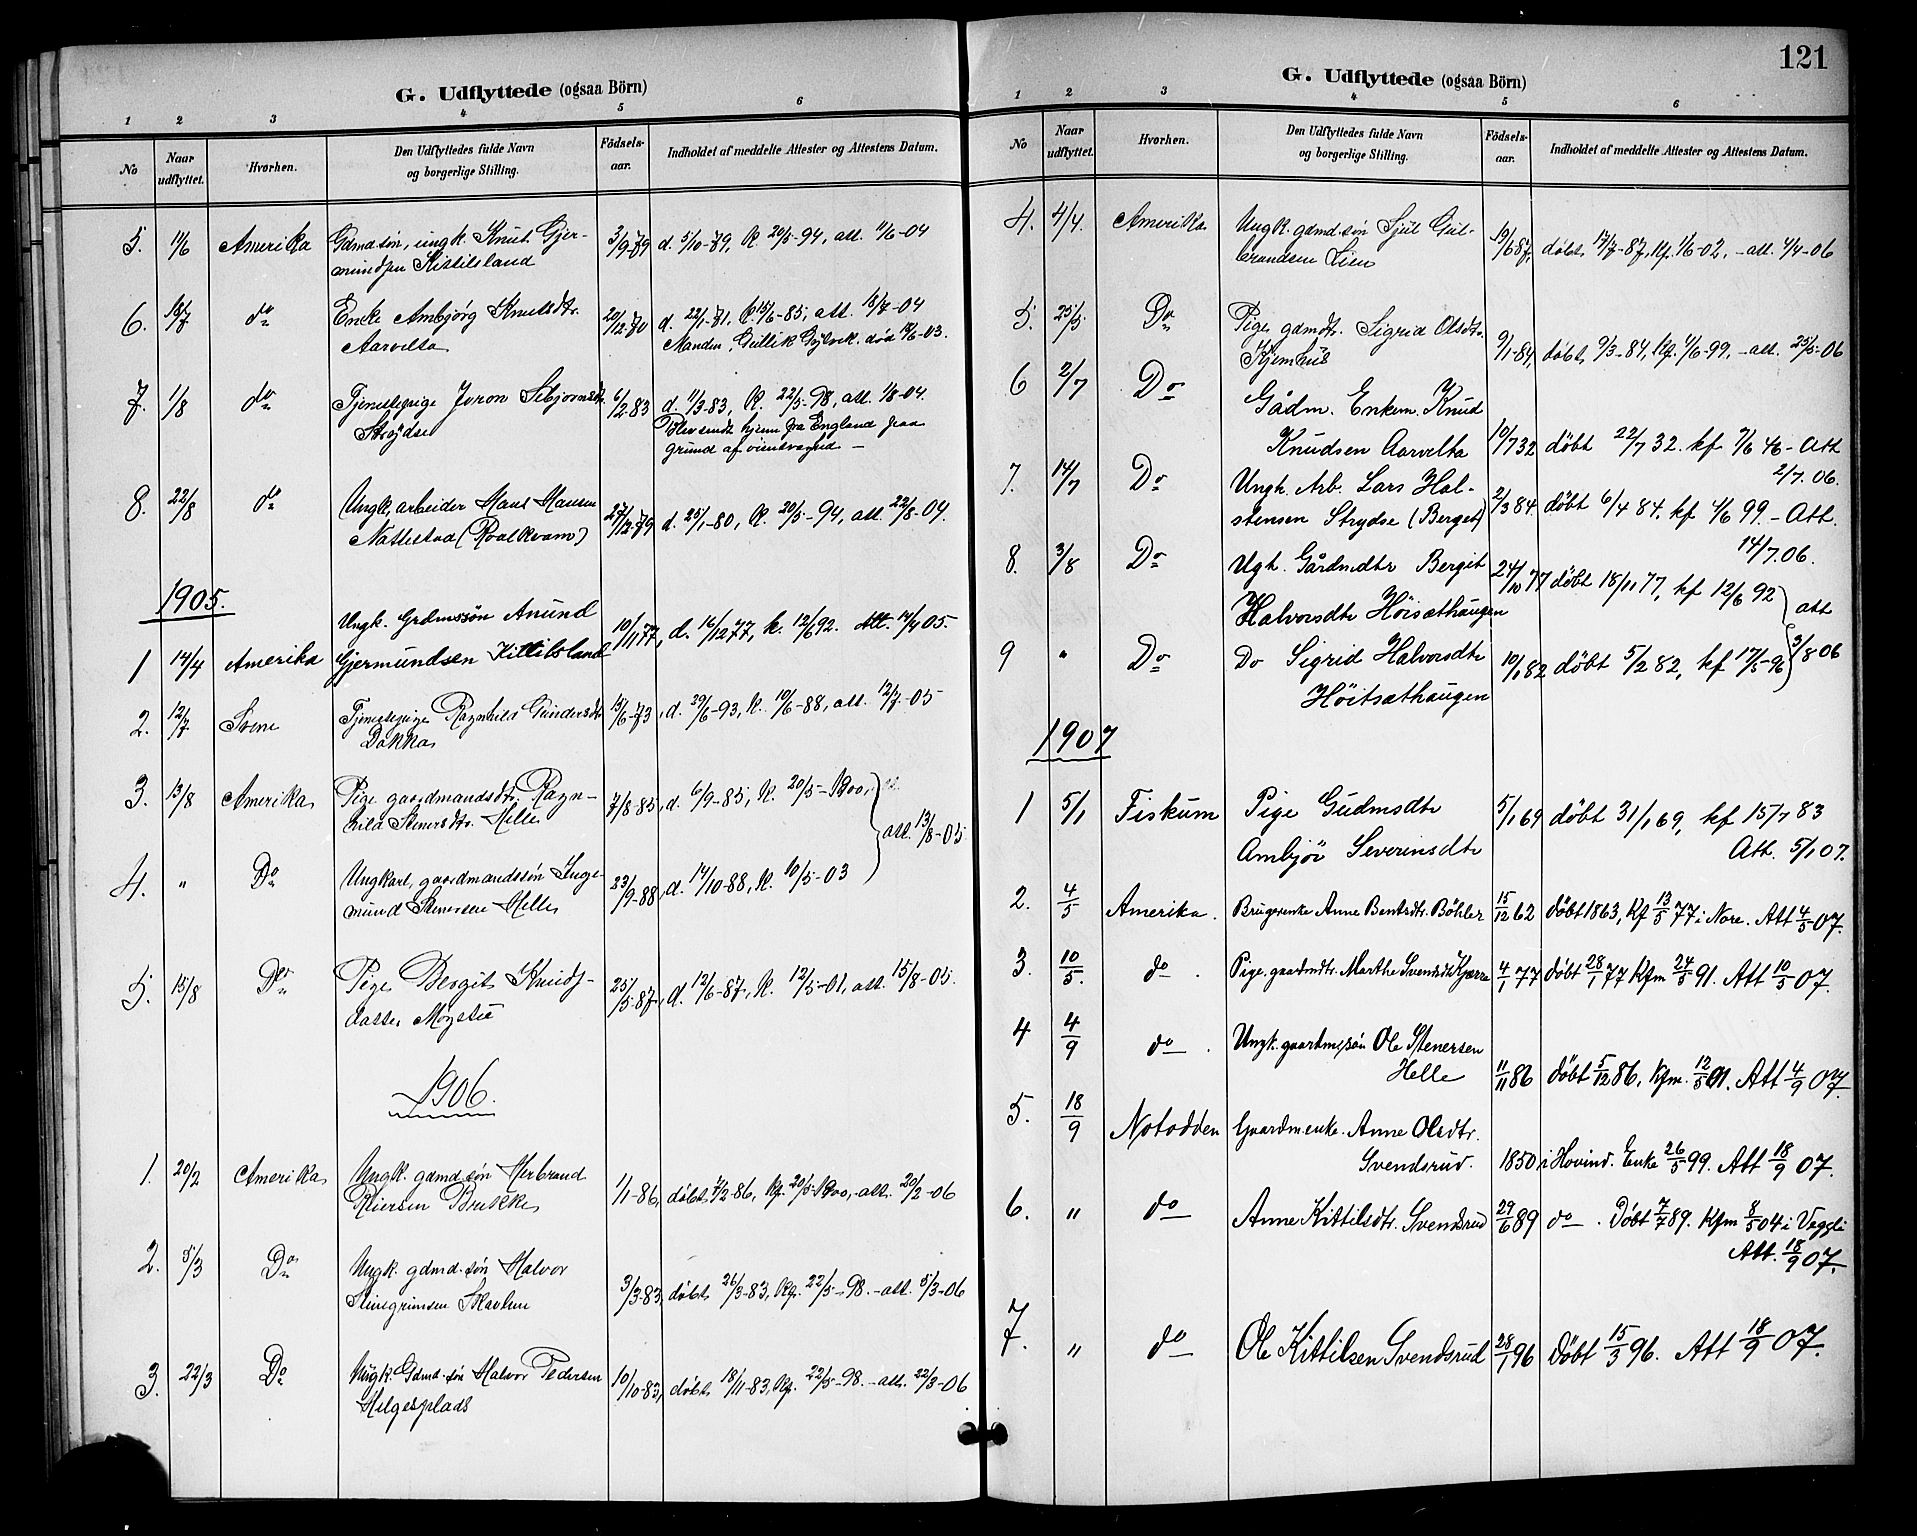 G. Udflyttede (ogsaa Börn)
1 2 3 4 5 6
No Naar udflyttet. Hvorhen. Den Udflyttedes fulde Navn og borgerlige Stilling. Födsels-aar. Indholdet af meddelte Attester og Attestens Datum.
5. 11/6 Amerika Gdmdsøn, ungk. Knut Gjer- 3/9-79 d. 5/10-79, K. 20/5-94, att. 11/6-04
mundsen Kittilsland
6. 18/7 do Enke Ambjørg Knutsdtr. 20/12-70 d. 22/1-71, K. 15/6-85, att. 18/7-04
Aarvelta Manden, Gullik død 12/6-03.
7. 1/8 do Tjenestepige Joron Sebjørnsdtr. 6/2-83 d. 11/3-83, K. 22/5-98, att. 1/8-04.
Strydse Blev sendt hjem fra England paa
grund af
8. 22/8 do Ungk, arbeider Hans Hansen 27/12-79 d. 25/1-80, K. 20/5-94, att. 22/8-04.
Nattestad (Roalkvam)
1905.
Ungk. Grdmssøn Anund 10/11 77, d. 16/12 77, k. 12/6 92. Att. 14/4 05.
1 14/4 Amerika Gjermundsen Kittilsland
2. 12/7 Svene Tjenestepige Ragnhild Gundersdtr 15/6-73, d. 29/6-93, K. 10/6-88, att. 12/7-05
Dokka
3. 13/8 Amerika Pige gaardmandsdtr. Ragn- 7/8-85, d. 6/9-85, K. 20/5-1900,
hild Stenersdtr. Helle att. 13/8-05
4. " Do Ungkarl, gaardmandssøn Inge- 23/9-88, d. 14/10-88, K. 10/5-03
mund Stenersen Helle
5. 15/8 Do Pige Bergit Knuds- 25/5-87, d. 12/6-87, K. 12/5-01, att. 15/8-05.
datter Møystu
1906.
1. 20/2 Amerika Ungk. gdmd.søn Herbrand 1/1-86, døbt 7/2-86, Kf. 20/5-1900, att. 20/2-06
Reiersen Brukke
2. 5/3 Do Ungk. gdmd.søn Halvor
Steingrimsen Skavlem 3/3-83, døbt 26/3-83, Kf. 22/5-98.-att. 5/3-06
3. 22/3 Do Ungk. Gdmd.søn Halvor Pedersen 10/10-83, døbt 18/11-83, Kf. 22/5-98.-att. 22/3-06
Helgesplads
121
G. Udflyttede (ogsaa Börn)
1 2 3 4 5 6
No Naar udflyttet. Hvorhen. Den Udflyttedes fulde Navn og borgerlige Stilling. Födsels-aar. Indholdet af meddelte Attester og Attestens Datum.
4. 4/4. Amerika Ungk. gdmd.søn Sjul Gul- 19/6 87, døbt 17/7-87, Kf. 1/6-02, -att. 4/4-06
brandsen Lien
5. 25/5 Do Pige gdmdtr. Sigrid Olsdtr. 9/1-84, døbt 9/3-84, Kf. 4/6-99, -att. 25/5-06
Kjemhus
6 2/7 Do Gådm. Enkem. Knud
Knudsen Aarvelta 10/7 32 døbt 22/7 32. kf 7/6 46 - Att
2/7. 06.
7. 14/7 Do Ungk. Arb. Lars Hal- 2/3 84 døbt 6/4 84, kf 4/6 99. - Att.
stensen Strydse (Berget)
14/7.06.
8. 3/8 Do Ugk. Gårdmdtr Bergit 24/10 77 døbt 18/11 77, kf 12/6 92
Halvorsdtr Höisæthaugen att
9 " Do Do Sigrid Halvorsdtr 10/1 82 døbt 5/2 82, kf 17/5-96 3/8 06
Höitsæthaugen
1907
1 5/1 Fiskum Pige Gudmsdtr 5/1 69 døbt 31/1 69, kf 15/7 83
Ambjör Severinsdtr Att. 5/1 07.
2. 4/5 Amerika. Brugerenke Anne Bentsdtr. Böhler 15/12 62 døbt 1863, Kf 13/5 77 i Nore. Att 4/5 07.
3. 10/5. do. Pige, gaardmdtr. Marthe Svensdtr Kjærra 4/1 77 døbt 28/1 77 Kfm 24/5 91. Att 10/5 07.
4 4/9 do. Ungk. gaardmssøn Ole Stenersen
Helle 11/11 86 døbt 5/12 86, Kfm. 12/5 01. Att 4/9 07.
5. 18/9 Notodden Gaardmenke. Anne Olsdtr.
Svendsrud. 1850 i Hovind. Enke 26/5 99. Att 18/9 07.
6. " do Anne Kittilsdtr. Svendsrud 29/6 89 do. Døbt 7/7 89. Kfm 8/5 04 i Veggli
Att. 18/9 07.
7. " do Ole Kittilsen Svendsrud 28/1 96 døbt 15/3 96. Att 18/9 07.